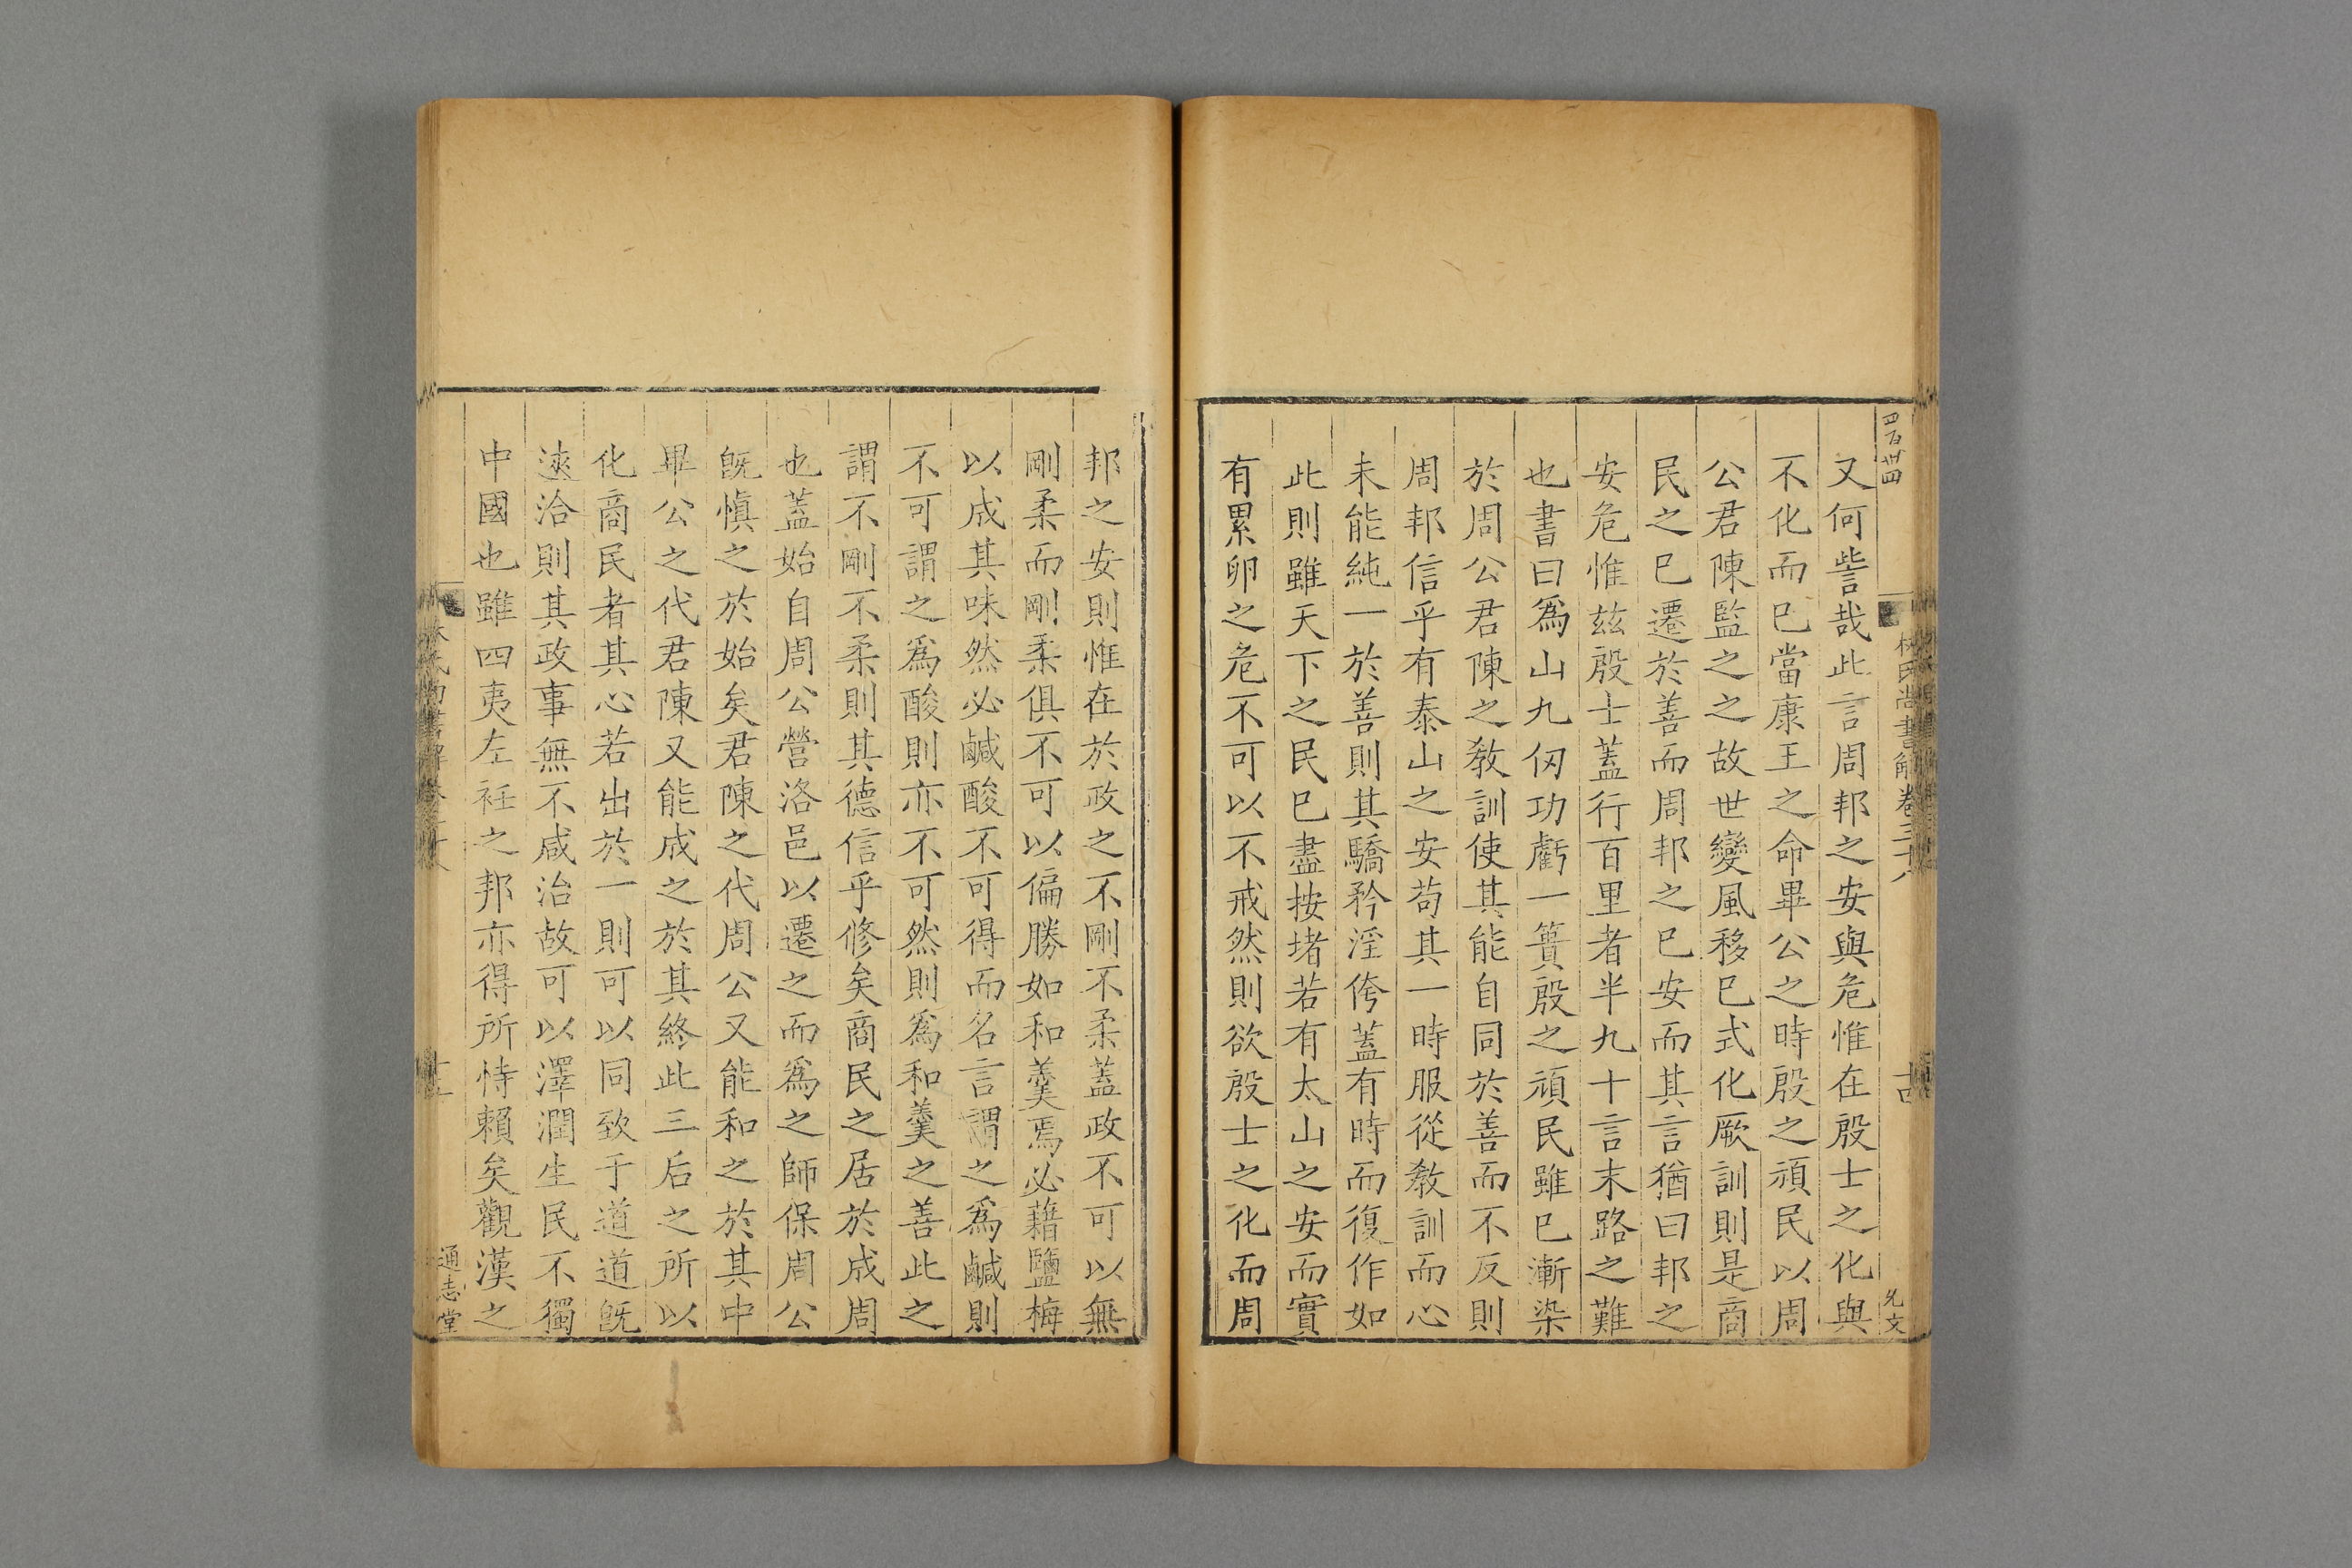 四百廿四
林氏尚書解卷三十八
十四
允文
又何訾哉此言周邦之安與危惟在殷士之化與
不化而已當康王之命畢公之時殷之頑民以周
公君陳監之之故世變風移已式化厥訓則是商
民之已遷於善而周邦之已安而其言猶曰邦之
安危惟兹殷士蓋行百里者半九十言末路之難
也書曰爲山九仞功虧一簣殷之頑民雖已漸染
於周公君陳之教訓使其能自同於善而不反則
周邦信乎有泰山之安苟其一時服從教訓而心
未能純一於善則其驕矜淫侉蓋有時而復作如
此則雖天下之民已盡按堵若有太山之安而實
有累卵之危不可以不戒然則欲殷士之化而周
邦之安則惟在於政之不剛不柔蓋政不可以無
剛柔而剛柔俱不可以偏勝如和羹焉必藉鹽梅
以成其味然必鹹酸不可得而名言謂之爲鹹則
不可謂之爲酸則亦不可然則爲和羹之善此之
謂不剛不柔則其德信乎修矣商民之居於成周
也蓋始自周公營洛邑以遷之而爲之師保周公
旣愼之於始矣君陳之代周公又能和之於其中
畢公之代君陳又能成之於其終此三后之所以
化商民者其心若出於一則可以同致于道道旣
浹洽則其政事無不咸治故可以澤潤生民不獨
中國也雖四夷左衽之邦亦得所恃賴矣觀漢之
十五
通志堂